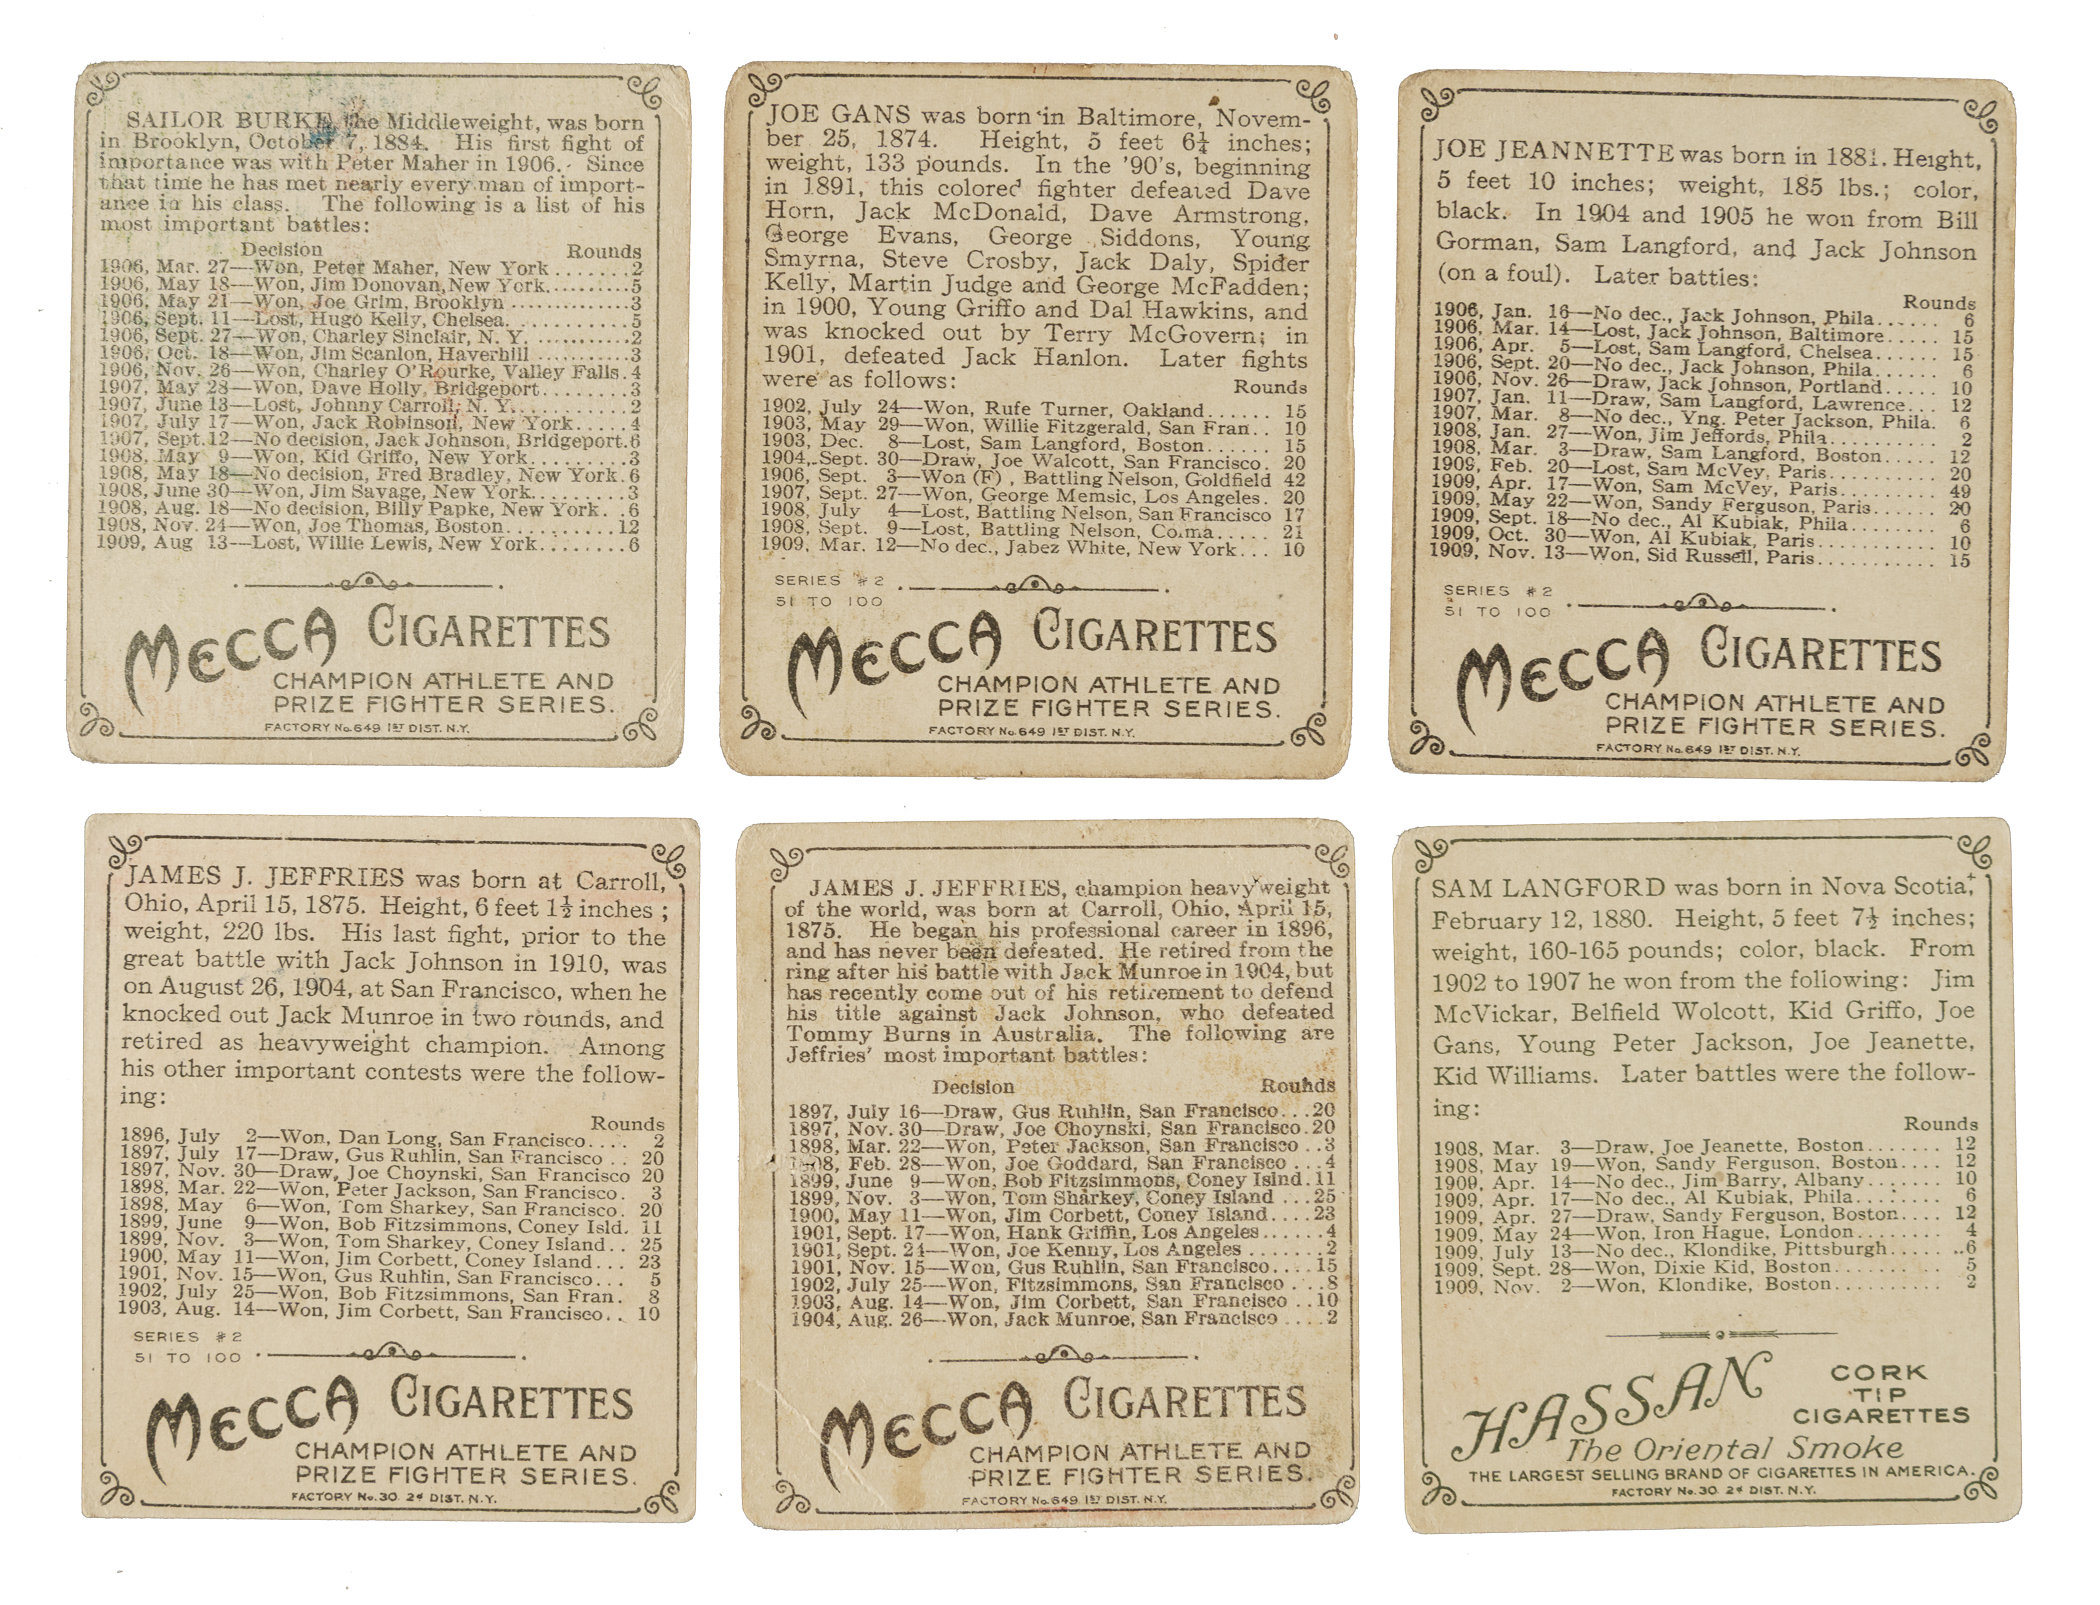 SAILOR BURKE, the Middleweight, was born
in Brooklyn, October 7, 1884. His first fight of
importance was with Peter Maher in 1906. Since
that time he has met nearly every man of import-
ance in his class. The following is a list of his
most important battles:
Decision Rounds
1906, Mar. 27—Won, Peter Maher, New York.......2
1906, May 18—Won, Jim Donovan, New York.........5
1906, May 21—Won, Joe Grim, Brooklyn............3
1906, Sept. 11—Lost, Hugo Kelly, Chelsea...........5
1906, Sept. 27—Won, Charley Sinclair, N. Y...........2
1906, Oct. 18—Won, Jim Scanlon, Haverhill..........3
1906, Nov. 26—Won, Charley O'Rourke, Valley Falls.4
1907, May 28—Won, Dave Holly, Bridgeport........3
1907, June 13—Lost, Johnny Carroll, N. Y...........2
1907, July 17—Won, Jack Robinson, New York.....4
1907, Sept. 12—No decision, Jack Johnson, Bridgeport.6
1908, May 9—Won, Kid Griffo, New York.........3
1908, May 18—No decision, Fred Bradley, New York.6
1908, June 30—Won, Jim Savage, New York........3
1908, Aug. 18—No decision, Billy Papke, New York..6
1908, Nov. 24—Won, Joe Thomas, Boston..........12
1909, Aug 13—Lost, Willie Lewis, New York........6
MECCA CIGARETTES
CHAMPION ATHLETE AND
PRIZE FIGHTER SERIES.
FACTORY No. 649 1ST DIST. N.Y.
JOE GANS was born in Baltimore, Novem-
ber 25, 1874. Height, 5 feet 6¼ inches;
weight, 133 pounds. In the '90's, beginning
in 1891, this colored fighter defeated Dave
Horn, Jack McDonald, Dave Armstrong,
George Evans, George Siddons, Young
Smyrna, Steve Crosby, Jack Daly, Spider
Kelly, Martin Judge and George McFadden;
in 1900, Young Griffo and Dal Hawkins, and
was knocked out by Terry McGovern; in
1901, defeated Jack Hanlon. Later fights
were as follows:
Rounds
1902, July 24—Won, Rufe Turner, Oakland...... 15
1903, May 29—Won, Willie Fitzgerald, San Fran.. 10
1903, Dec. 8—Lost, Sam Langford, Boston..... 15
1904, Sept. 30—Draw, Joe Walcott, San Francisco. 20
1906, Sept. 3—Won (F), Battling Nelson, Goldfield 42
1907, Sept. 27—Won, George Memsic, Los Angeles. 20
1908, July 4—Lost, Battling Nelson, San Francisco 17
1908, Sept. 9—Lost, Battling Nelson, Colma..... 21
1909, Mar. 12—No dec., Jabez White, New York... 10
SERIES #2
51 TO 100
MECCA CIGARETTES
CHAMPION ATHLETE AND
PRIZE FIGHTER SERIES.
FACTORY No. 649 1ST DIST. N.Y.
JOE JEANNETTE was born in 1881. Height,
5 feet 10 inches; weight, 185 lbs.; color,
black. In 1904 and 1905 he won from Bill
Gorman, Sam Langford, and Jack Johnson
(on a foul). Later battles:
Rounds
1906, Jan. 16—No dec., Jack Johnson, Phila...... 6
1906, Mar. 14—Lost, Jack Johnson, Baltimore..... 15
1906, Apr. 5—Lost, Sam Langford, Chelsea...... 15
1906, Sept. 20—No dec., Jack Johnson, Phila...... 6
1906, Nov. 26—Draw, Jack Johnson, Portland..... 10
1907, Jan. 11—Draw, Sam Langford, Lawrence... 12
1907, Mar. 8—No dec., Yng. Peter Jackson, Phila. 6
1908, Jan. 27—Won, Jim Jeffords, Phila.......... 2
1908, Mar. 3—Draw, Sam Langford, Boston..... 12
1909, Feb. 20—Lost, Sam McVey, Paris.......... 20
1909, Apr. 17—Won, Sam McVey, Paris.......... 49
1909, May 22—Won, Sandy Ferguson, Paris...... 20
1909, Sept. 18—No dec., Al Kubiak, Phila........ 6
1909, Oct. 30—Won, Al Kubiak, Paris........... 10
1909, Nov. 13—Won, Sid Russell, Paris........... 15
SERIES #2
51 TO 100
MECCA CIGARETTES
CHAMPION ATHLETE AND
PRIZE FIGHTER SERIES.
FACTORY No. 649 1ST DIST. N.Y.
JAMES J. JEFFRIES was born at Carroll,
Ohio, April 15, 1875. Height, 6 feet 1½ inches;
weight, 220 lbs. His last fight, prior to the
great battle with Jack Johnson in 1910, was
on August 26, 1904, at San Francisco, when he
knocked out Jack Munroe in two rounds, and
retired as heavyweight champion. Among
his other important contests were the follow-
ing:
Rounds
1896, July 2—Won, Dan Long, San Francisco.... 2
1897, July 17—Draw, Gus Ruhlin, San Francisco.. 20
1897, Nov. 30—Draw, Joe Choynski, San Francisco 20
1898, Mar. 22—Won, Peter Jackson, San Francisco. 3
1898, May 6—Won, Tom Sharkey, San Francisco. 20
1899, June 9—Won, Bob Fitzsimmons, Coney Isld. 11
1899, Nov. 3—Won, Tom Sharkey, Coney Island.. 25
1900, May 11—Won, Jim Corbett, Coney Island... 23
1901, Nov. 15—Won, Gus Ruhlin, San Francisco... 5
1902, July 25—Won, Bob Fitzsimmons, San Fran. 8
1903, Aug. 14—Won, Jim Corbett, San Francisco.. 10
SERIES #2
51 TO 100
MECCA CIGARETTES
CHAMPION ATHLETE AND
PRIZE FIGHTER SERIES.
FACTORY No. 30 2d DIST. N.Y.
JAMES J. JEFFRIES, champion heavyweight
of the world, was born at Carroll, Ohio, April 15,
1875. He began his professional career in 1896,
and has never been defeated. He retired from the
ring after his battle with Jack Munroe in 1904, but
has recently come out of his retirement to defend
his title against Jack Johnson, who defeated
Tommy Burns in Australia. The following are
Jeffries' most important battles:
Decision Rounds
1897, July 16—Draw, Gus Ruhlin, San Francisco...20
1897, Nov. 30—Draw, Joe Choynski, San Francisco.20
1898, Mar. 22—Won, Peter Jackson, San Francisco..3
1898, Feb. 28—Won, Joe Goddard, San Francisco...4
1899, June 9—Won, Bob Fitzsimmons, Coney Islnd.11
1899, Nov. 3—Won, Tom Sharkey, Coney Island...25
1900, May 11—Won, Jim Corbett, Coney Island....23
1901, Sept. 17—Won, Hank Griffin, Los Angeles......4
1901, Sept. 24—Won, Joe Kenny, Los Angeles.......2
1901, Nov. 15—Won, Gus Ruhlin, San Francisco....15
1902, July 25—Won, Fitzsimmons, San Francisco..8
1903, Aug. 14—Won, Jim Corbett, San Francisco..10
1904, Aug. 26—Won, Jack Munroe, San Francisco....2
MECCA CIGARETTES
CHAMPION ATHLETE AND
PRIZE FIGHTER SERIES.
FACTORY No. 649 1ST DIST. N.Y.
SAM LANGFORD was born in Nova Scotia,
February 12, 1880. Height, 5 feet 7½ inches;
weight, 160-165 pounds; color, black. From
1902 to 1907 he won from the following: Jim
McVickar, Belfield Wolcott, Kid Griffo, Joe
Gans, Young Peter Jackson, Joe Jeanette,
Kid Williams. Later battles were the follow-
ing:
Rounds
1908, Mar. 3—Draw, Joe Jeanette, Boston....... 12
1908, May 19—Won, Sandy Ferguson, Boston.... 12
1909, Apr. 14—No dec., Jim Barry, Albany....... 10
1909, Apr. 17—No dec., Al Kubiak, Phila........ 6
1909, Apr. 27—Draw, Sandy Ferguson, Boston.... 12
1909, May 24—Won, Iron Hague, London........ 4
1909, July 13—No dec., Klondike, Pittsburgh..... ..6
1909, Sept. 28—Won, Dixie Kid, Boston.......... 5
1909, Nov. 2—Won, Klondike, Boston.......... 2
HASSAN CORK
TIP
CIGARETTES
The Oriental Smoke
THE LARGEST SELLING BRAND OF CIGARETTES IN AMERICA.
FACTORY No. 30 2d DIST. N.Y.